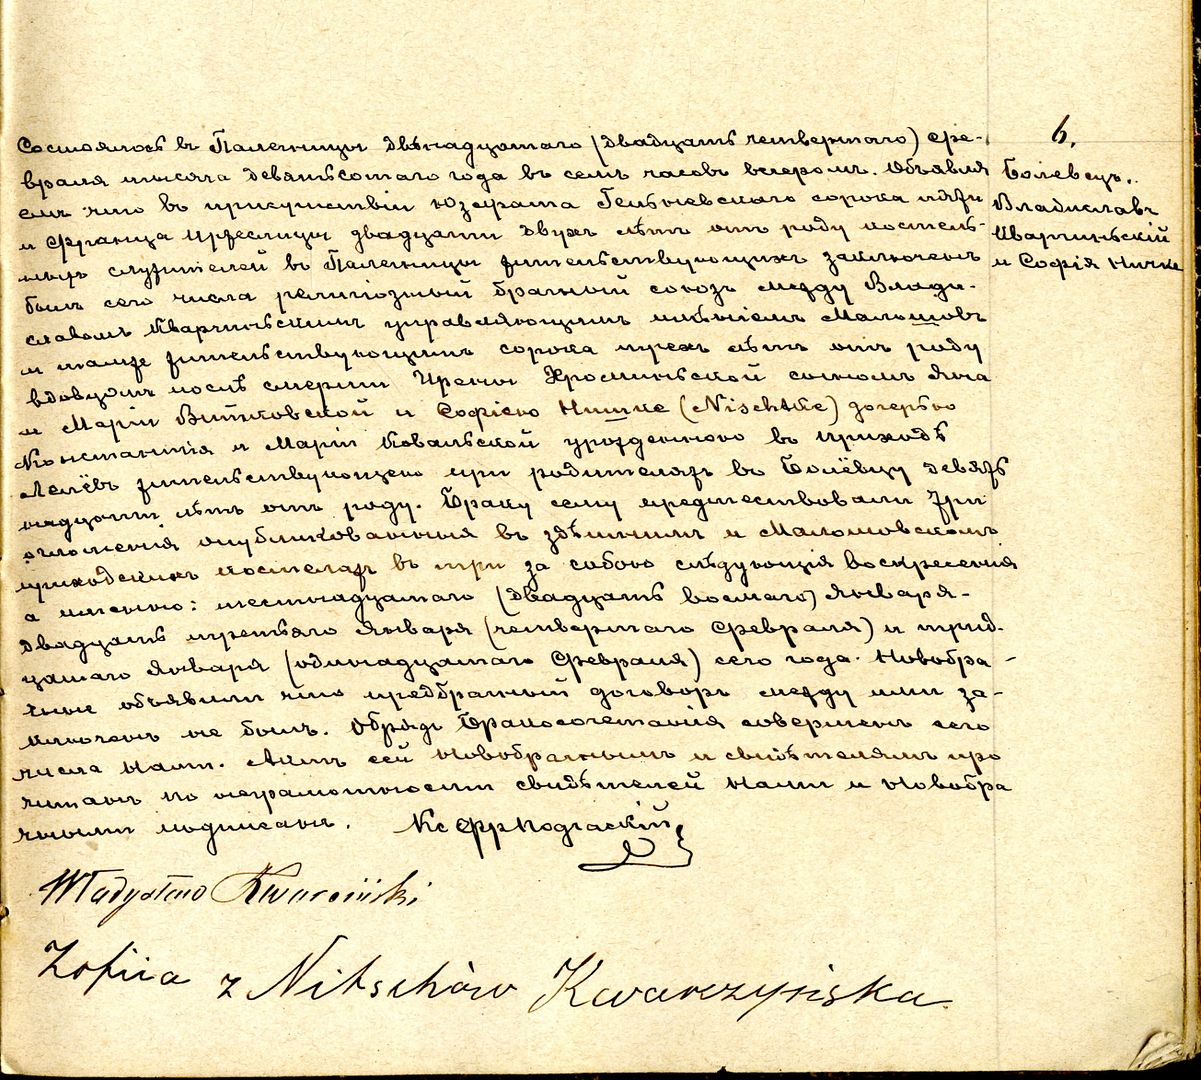 6.
Болевецъ.
Владиславъ
Кварчиньскій
и Софія Ничке
Состоялось въ Паленицы двѣнадцатаго (двадцать четвертаго) фе-
враля тысяча девятьсотаго года въ семь часовъ вечеромъ. Объявля
емъ что въ присутствіи Юзефата сорока пяти
и Франца двадцати двухъ лѣтъ отъ роду костель-
ныхъ служителей въ Паленицы жительствующихъ заключенъ
былъ сего числа религіозный брачный союзъ между Влади-
славомъ Кварчиньскимъ управляющимъ имѣніемъ Малошовъ
и тамже жительствующимъ сорока трехъ лѣтъ отъ роду
вдовцомъ послѣ смерти Ирены Хроминьской сыномъ Яна
и Маріи Витковской и Софіею Нитке (Nischtke) дочерью
Константія и Маріи Ковальской урожденною въ приходѣ
Лелёвъ жительствующею при родителяхъ въ Болёвцу девят
надцати лѣтъ отъ роду. Браку сему предшествовали три
оглошенія опубликованныя въ здѣшнимъ и Малошовскомъ
приходскихъ костелахъ въ три за собою слѣдующія воскресенія
а именно: шестнадцатаго (двадцать восмаго) Января-
двадцать третьяго Января (четвертаго Февраля) и трид-
цатаго Января (одинадцатаго Февраля) сего года. Новобра-
чные объявили что предбрачный договоръ между ими за-
ключенъ не былъ. Обрядъ бракосочетанія совершенъ сего
числа нами. Актъ сей новобрачнымъ и свидѣтелямъ про
читанъ по неграмотности свидѣтелей нами и новобра
чными подписанъ. Кс
Władysław Kwarciński
Zofiia z Nitschów Kwarczyńska